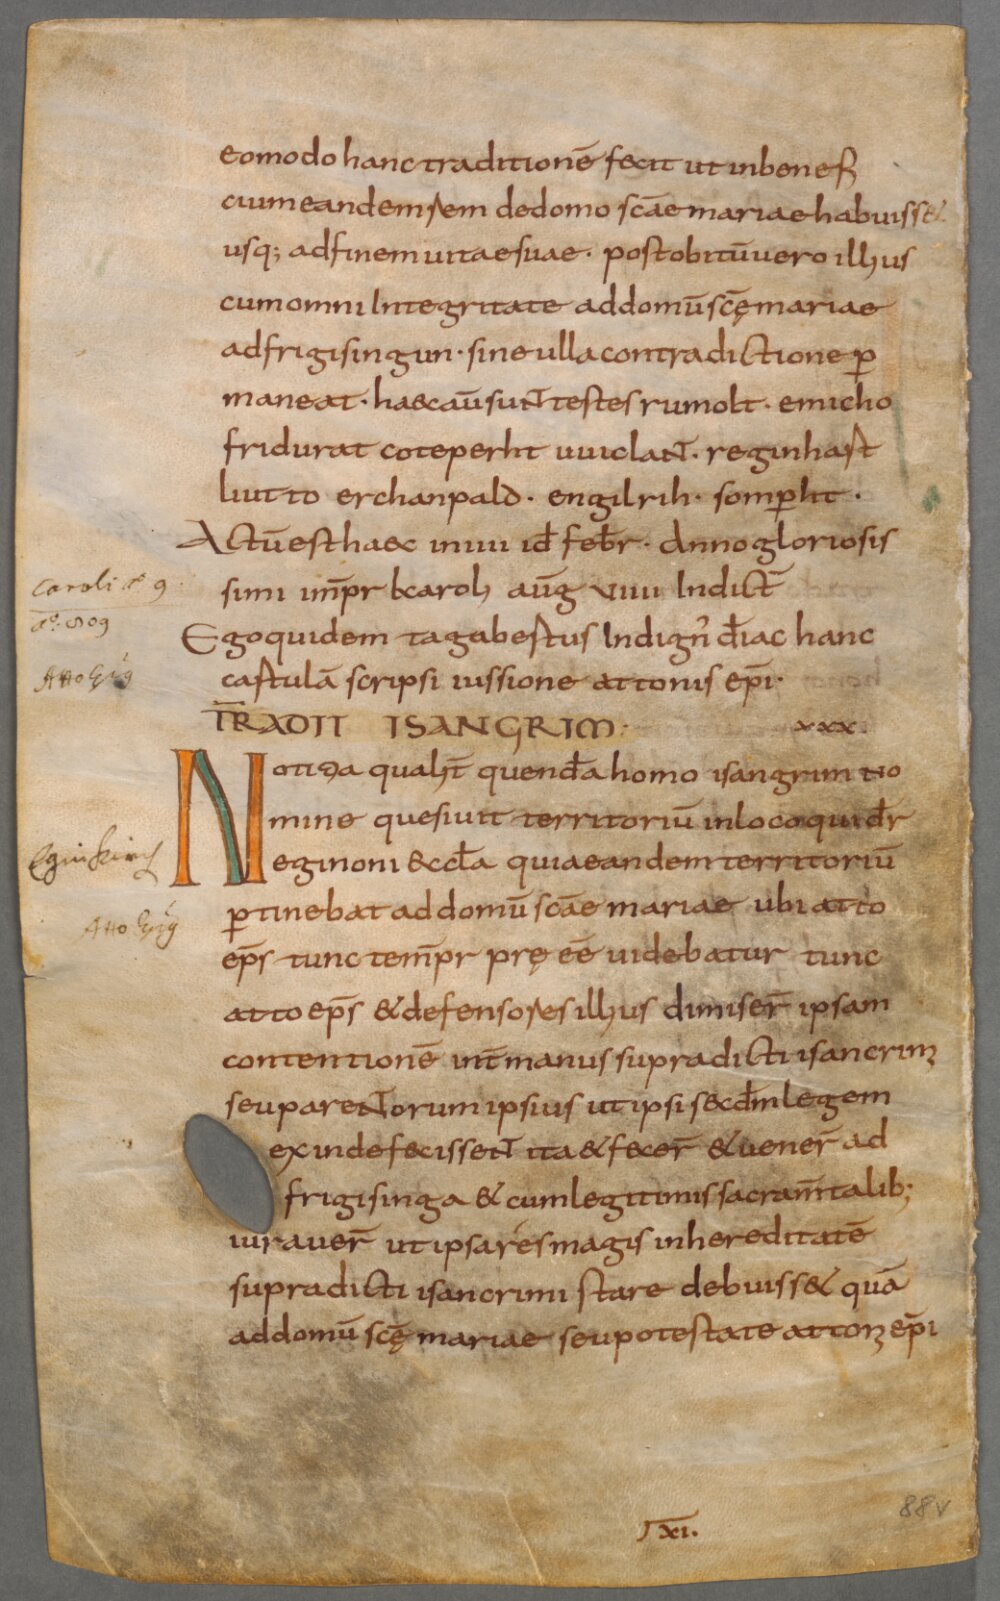 eo modo hanc traditionē fecit ut in benefi
cium eandem rem de domo sc̄ae mariae habuiss&
usq; ad finem uitae suae · post obitū uero illius
cum omni Integritate ad domū sc̄ę mariae
ad frigisingun · sine ulla contradictione p̱
maneat · haec aūt sunt testes rumolt · emicho
fridurat coteperht uuiclant · reginhart
liutto erchanpald · engilrih · somperht ·
Actū est haec in iiii id febr̄ · Anno gloriosis
simi imp̄r karoli aūg viiii Indict̄
Ego quidem tagabertus Indign̄ diac̄ hanc
cartulā scripsi iussione attonis ep̄i ·
TRADIT̄ ISANGRIM · xxx ·
caroli a° 9
a°. 809
Atto Ep̄s
Notitia qualit̄ quendā homo isangrim no
mine quesiuit territoriū in loco qui dr̄
eginoni &ccla quia eandem territoriū
ptinebat ad domū sc̄ae mariae ubi atto
Eginkirch
Atto Ep̄s
ep̄s tunc temp̄r pręeē uidebatur tunc
atto ep̄s & defensores illius dimiser̄ ipsam
contentionē int̄ manus supradicti isancrim
seu parentorum ipsius ut ipsi secd̄m legem
exinde fecissent ita & fecer̄ & uener̄ ad
frigisinga & cum legitimis sacram̄talib;
iurauer̄ ut ipsa res magis in hereditatē
supradicti isancrimi stare debuiss& quā
ad domū sc̄ę mariae seu potestate attoni ep̄i
88v
xi.